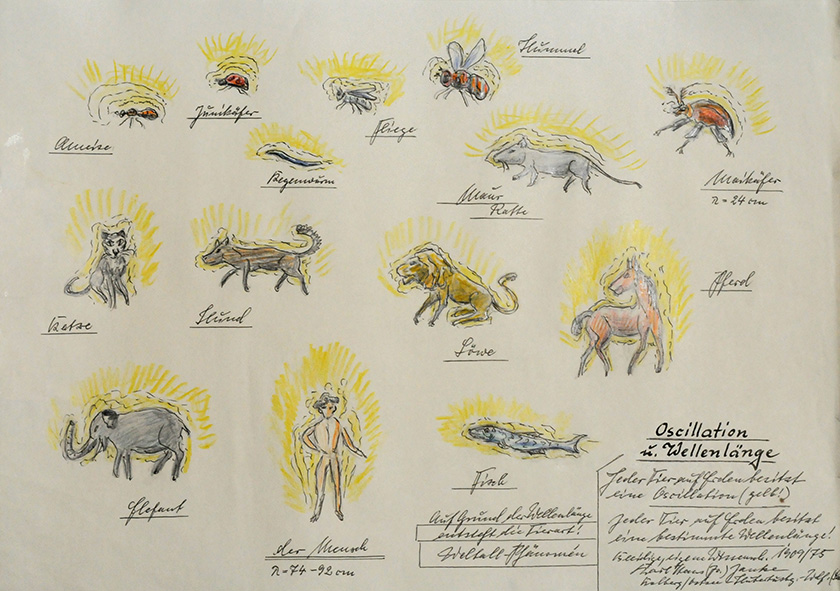 Hummel
Ameise
Junikäfer
Fliege
Regenwurm
Maus
Ratte
Maikäfer
n = 24 cm
Katze
Hund
Löwe
Pferd
Elefant
der Mensch
n = 74 - 92 cm
Fisch
Auf Grund der Wellenlänge
entsteht die Tierart!
Weltall-Phänomen
Oscillation
u. Wellenlänge
Jeder Tier auf Erden besitzt
eine Oscillation (gelb!)
Jeder Tier auf Erden besitzt
eine bestimmte Wellenlänge!
1909/75
Karl Hans Janke